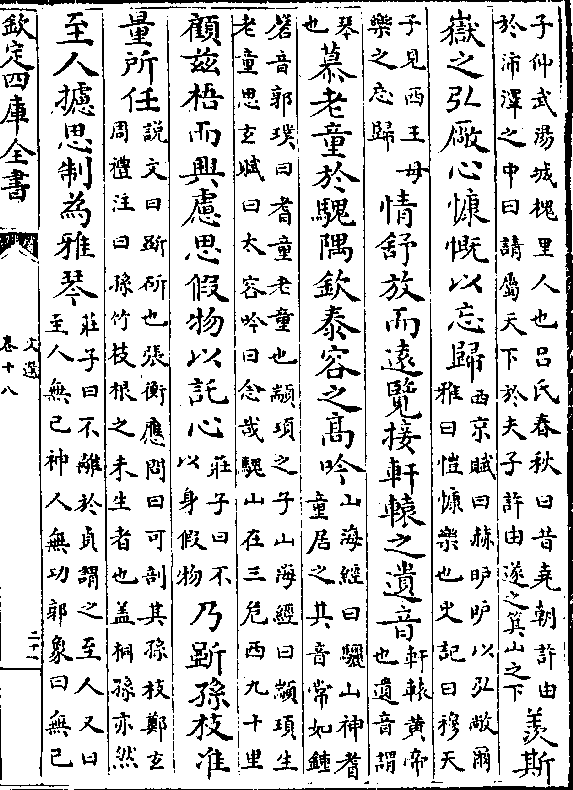 子仲武陽城槐里人也呂氏春秋曰昔堯朝許由
於沛澤之中曰請屬天下於夫子許由遂之箕山之下
羨斯
嶽之弘厰心慷慨以忘歸
西京賦曰赫昈昈以弘敞爾
雅曰愷慷樂也史記曰穆天
子見西王母
樂之忘歸
情舒放而遠覽接軒轅之遺音
軒轅黄帝
也遺音謂
琴
也
慕老童於騩隅欽泰容之髙吟
山海經曰騩山神耆
童居之其音常如鍾
磬音郭璞曰耆童老童也顓頊之子山海經曰顓頊生
老童思玄賦曰太容吟曰念哉騩山在三危西九十里
顧兹梧而興慮思假物以託心
莊子曰不
以身假物
乃斲孫枝准
量所任
説文曰斲斫也張衡應問曰可剖其孫枝鄭玄
周禮注曰孫竹枝根之未生者也盖桐孫亦然
至人攄思制為雅琴
莊子曰不離於貞謂之至人又曰
至人無己神人無功郭象曰無己
欽定四庫全書
文選
卷十八
二十一